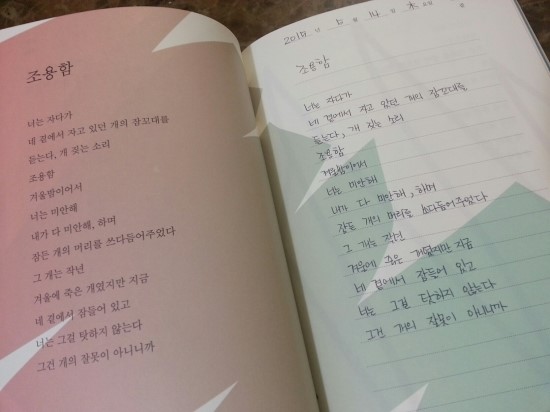 조용함
너는 자다가
네 곁에서 자고 있던 개의 잠꼬대를
듣는다, 개 짖는 소리
조용함
겨울밤이어서
너는 미안해
내가 다 미안해, 하며
잠든 개의 머리를 쓰다듬어주었다
그 개는 작년
겨울에 죽은 개였지만 지금
네 곁에서 잠들어 있고
너는 그걸 탓하지 않는다
그건 개의 잘못이 아니니까
2017 년 5 월 14 일
조용함
너는 자다가
네 곁에서 자고 있던 개의 잠꼬대를
듣는다, 개 짖는 소리
조용함
겨울밤이어서
너는 미안해
내가 다 미안해, 하며
잠든 개의 머리를 쓰다듬어주었다
그 개는 작년
겨울에 죽은 개였지만 지금
네 곁에서 잠들어 있고
너는 그걸 탓하지 않는다
그건 개의 잘못이 아니니까